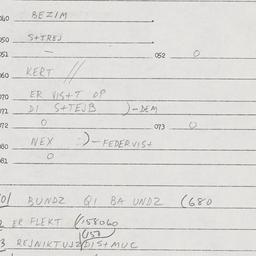 040 BEZIM
050 S+TREJ
051 — 052 0
060 KERT //
070 ER VIS+T OP
071 DI S+TEJB )-DEM
072 0 073 0
080 NEX :)-FEDERVIS+
081 0
01 BUNDZ QI BA UNDZ (680
2 ER FLEKT (158060
(157)
3 REJNIKTUJZ DIS+MUC